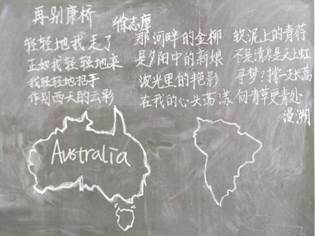 再别康桥
徐志摩
轻轻地我走了
正如我轻轻地来
我轻轻地招手
作别西天的云彩
那河畔的金柳
是夕阳中的新娘
波光里的艳影
在我的心头荡漾
软泥上的青荇
不是清泉是天上虹
寻梦？撑一支长篙
向青草更青处
漫溯
Australia